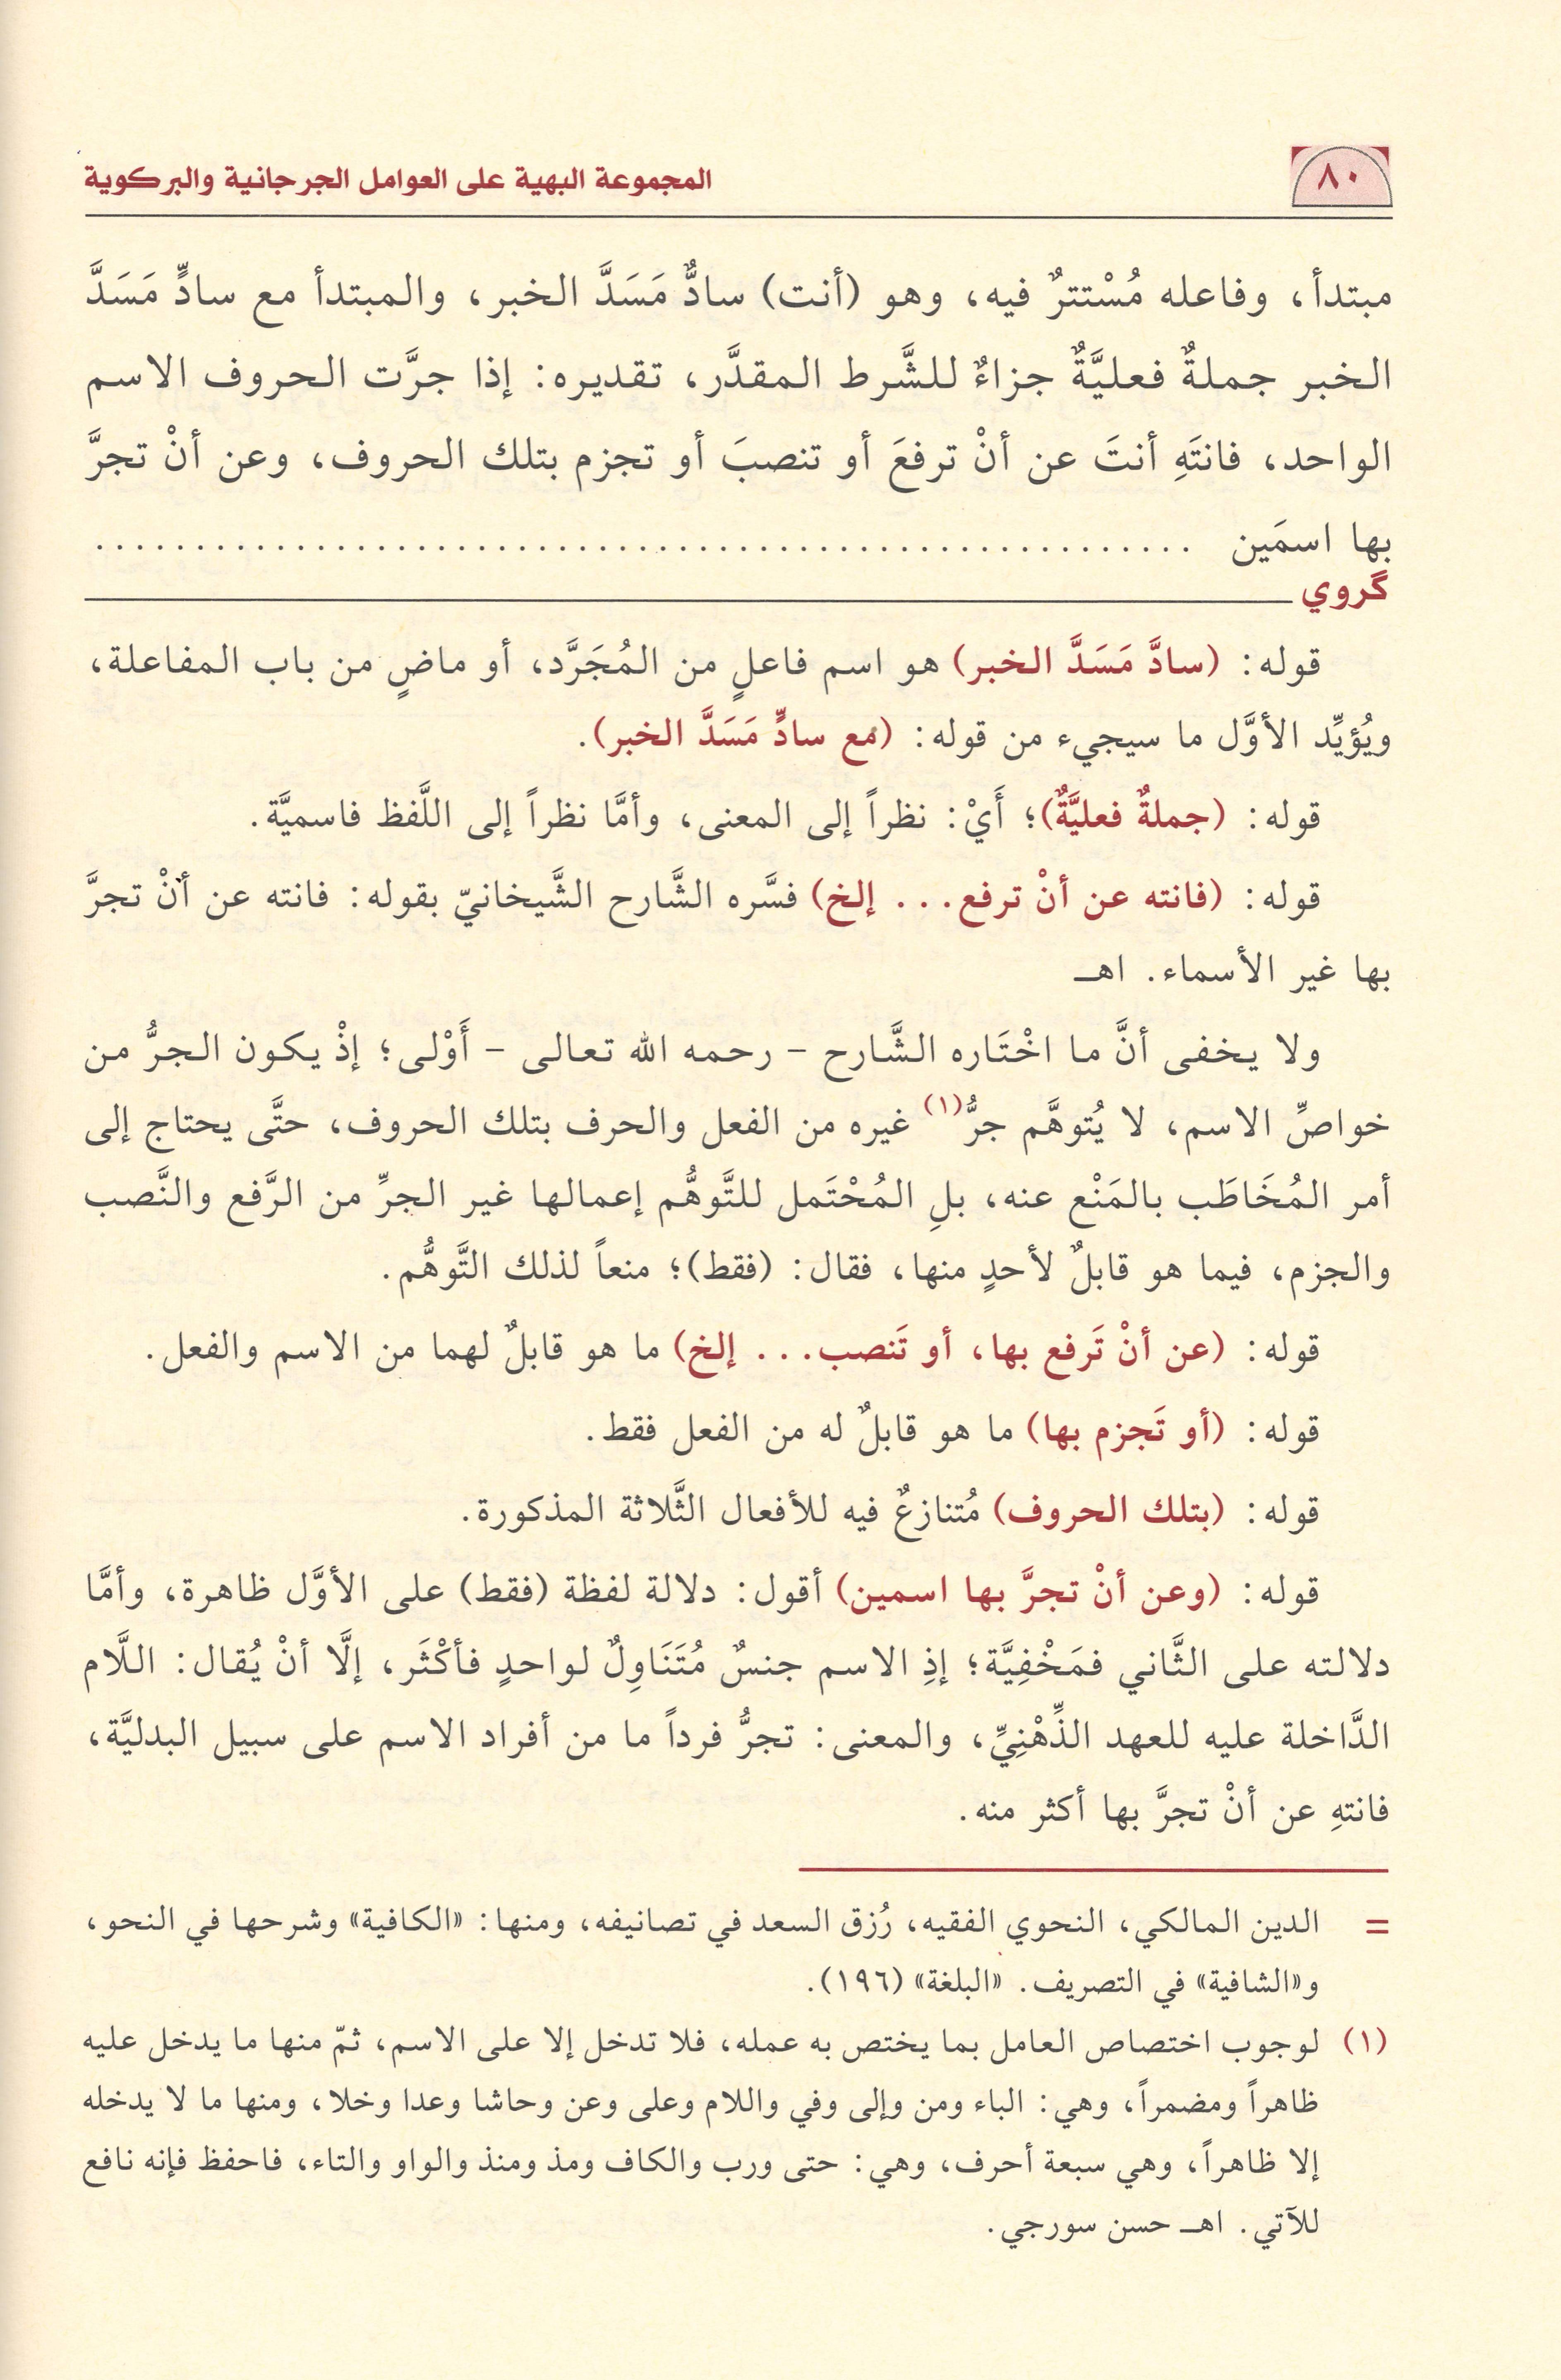 ٨٠
المجموعة البهية على العوامل الجرجانية والبركوية
مبتدأ، وفاعله مُسْتترٌ فيه، وهو (أنت) سادٌّ مَسَدَّ الخبر، والمبتدأ مع سادٍّ مَسَدَّ
الخبر جملةٌ فعليَّةٌ جزاءٌ للشَّرط المقدَّر، تقديره: إذا جرَّت الحروف الاسم
الواحد، فانتَهِ أنتَ عن أنْ ترفعَ أو تنصبَ أو تجزم بتلك الحروف، وعن أنْ تجرَّ
بها اسمَين .......................................................
گروي
قوله: (سادَّ مَسَدَّ الخبر) هو اسم فاعلٍ من المُجَرَّد، أو ماضٍ من باب المفاعلة،
ويُؤيِّد الأوَّل ما سيجيء من قوله: (مع سادٍّ مَسَدَّ الخبر).
قوله: (جملةٌ فعليَّةٌ)؛ أَيْ: نظراً إلى المعنى، وأمَّا نظراً إلى اللَّفظ فاسميَّة.
قوله: (فانته عن أنْ ترفع... إلخ) فسَّره الشَّارح الشَّيخانيّ بقوله: فانته عن أنْ تجرَّ
بها غير الأسماء. اهـ
ولا يخفى أنَّ ما اخْتَاره الشَّارح - رحمه الله تعالى - أَوْلى؛ إذْ يكون الجرُّ من
خواصِّ الاسم، لا يُتوهَّم جرُّ(١) غيره من الفعل والحرف بتلك الحروف، حتَّى يحتاج إلى
أمر المُخَاطَب بالمَنْع عنه، بلِ المُحْتَمل للتَّوهُّم إعمالها غير الجرِّ من الرَّفع والنَّصب
والجزم، فيما هو قابلٌ لأحدٍ منها، فقال: (فقط)؛ منعاً لذلك التَّوهُّم.
قوله: (عن أنْ تَرفع بها، أو تَنصب... إلخ) ما هو قابلٌ لهما من الاسم والفعل.
قوله: (أو تَجزم بها) ما هو قابلٌ له من الفعل فقط.
قوله: (بتلك الحروف) مُتنازعٌ فيه للأفعال الثَّلاثة المذكورة.
قوله: (وعن أنْ تجرَّ بها اسمين) أقول: دلالة لفظة (فقط) على الأوَّل ظاهرة، وأمَّا
دلالته على الثَّاني فمَخْفِيَّة؛ إذِ الاسم جنسٌ مُتَنَاوِلٌ لواحدٍ فأكْثَر، إلَّا أنْ يُقال: اللَّام
الدَّاخلة عليه للعهد الذِّهْنِيِّ، والمعنى: تجرُّ فرداً ما من أفراد الاسم على سبيل البدليَّة،
فانتهِ عن أنْ تجرَّ بها أكثر منه.
= الدين المالكي، النحوي الفقيه، رُزق السعد في تصانيفه، ومنها: «الكافية» وشرحها في النحو،
و«الشافية» في التصريف. «البلغة» (١٩٦).
(١) لوجوب اختصاص العامل بما يختص به عمله، فلا تدخل إلا على الاسم، ثمّ منها ما يدخل عليه
ظاهراً ومضمراً، وهي: الباء ومن وإلى وفي واللام وعلى وعن وحاشا وعدا وخلا، ومنها ما لا يدخله
إلا ظاهراً، وهي سبعة أحرف، وهي: حتى ورب والكاف ومذ ومنذ والواو والتاء، فاحفظ فإنه نافع
للآتي. اهـ حسن سورجي.